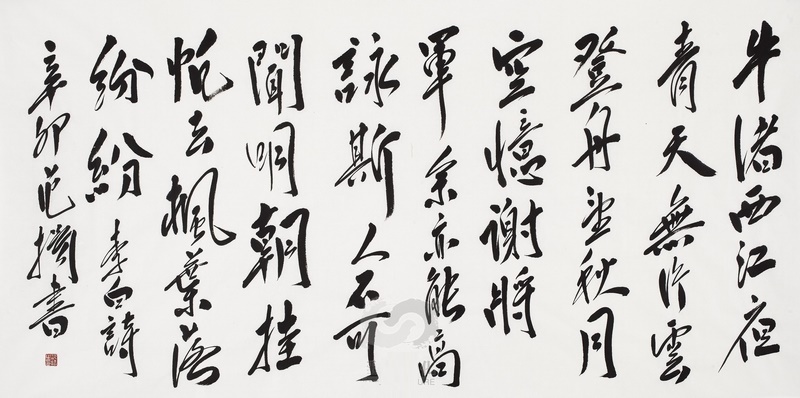 牛渚西江夜
青天無片雲
登舟望秋月
空憶謝將
軍余亦能高
詠斯人不可
聞明朝挂
帆去楓葉落
紛紛李白詩
辛卯范書